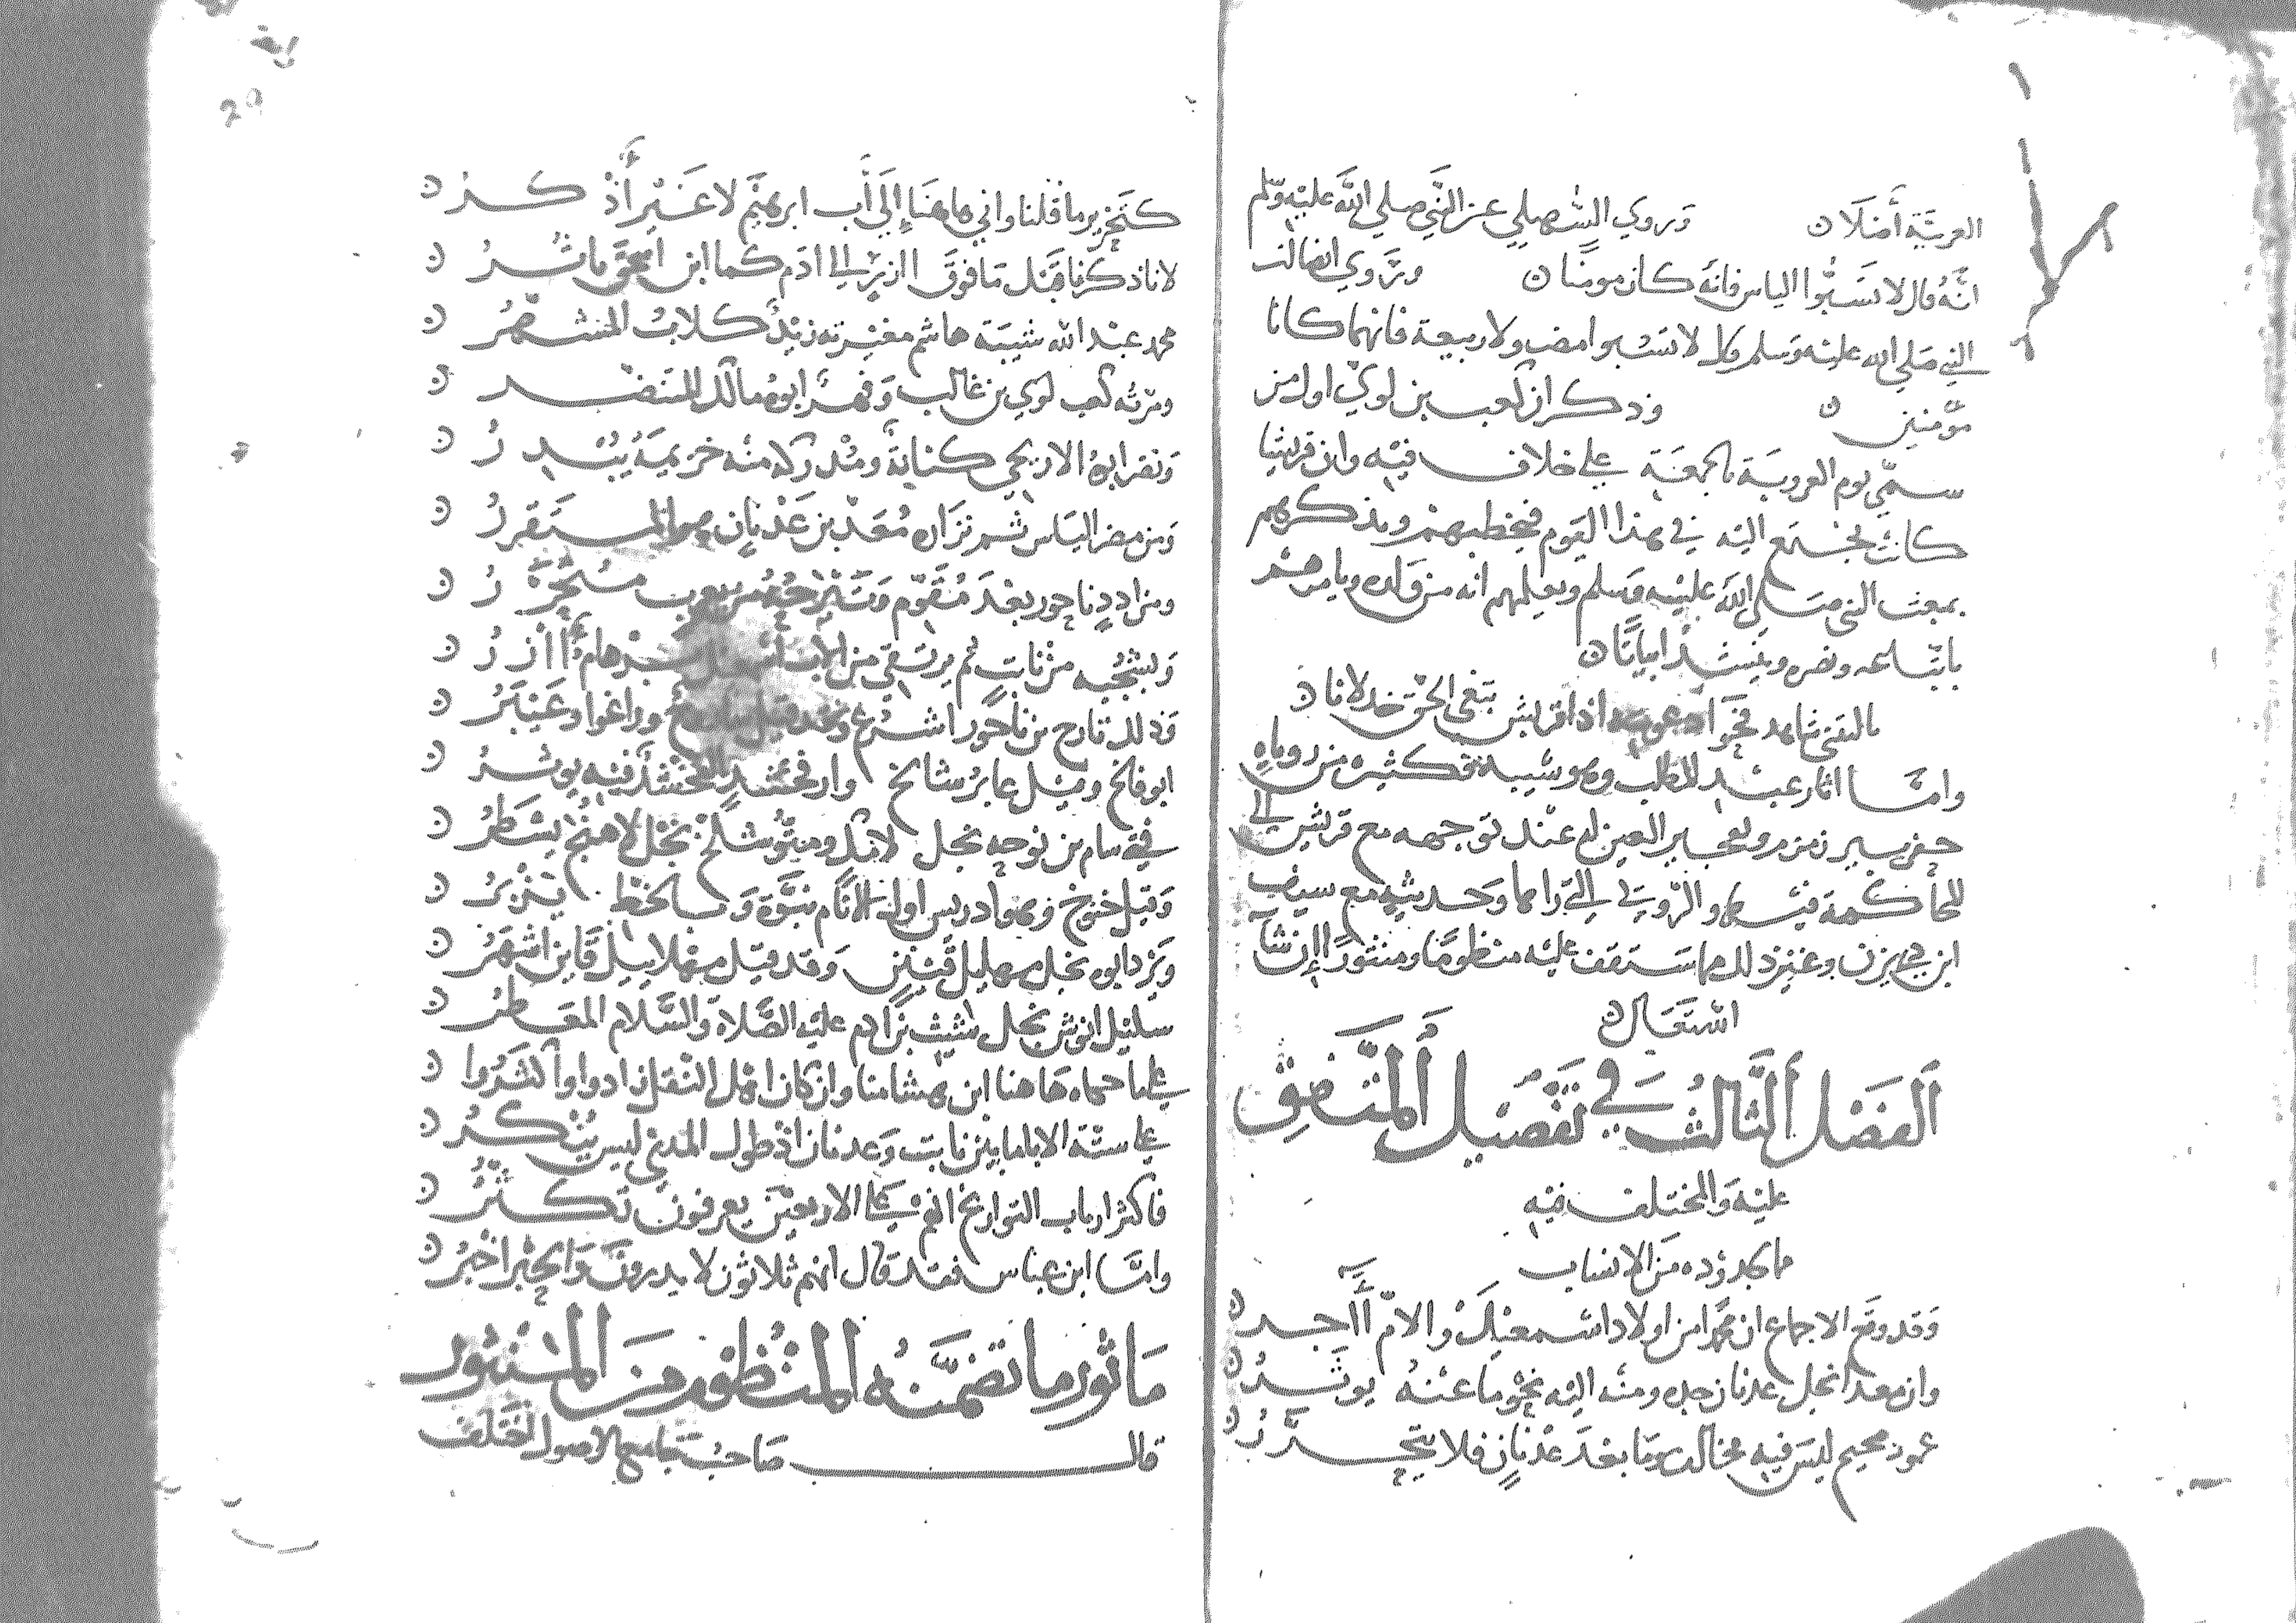 العربيَّة أصْلًا ن وَروي السُّهيلي عن النَّبي صلي اللَّه عليْه وسلم
انَّهُ قال لا تسُبُّوا الياس فانَّهُ كان مومنًا ن ويُروي ايضا ان
النبي صَلي الله عليْه وَسلم قال لا تسُبوا مضر ولا ربيعة فانهما كانا
مُؤمنين ن وذكر ان كعب بن لويّ اول من
سمَّي يوم العروبَة بالجمعَة علي خلاف فيْه وان قريشا
كانت تجتمع اليْه في هذا اليَوم فيخطبهمْ ويذكرهم
بمبعث النبي صَلي اللَّه عليْه وَسلم ويعلمهم انه من ولده ويامرهمْ
باتباعه ونصره وينشدُ ابياتًا ن
يا ليتني شاهد فحوا دعوته اذا قريش تبغي الحق خذلانا ن
وامَّا اثار عبْد المطلب وهو شيبة فكثيرة من روياه
حفر بير زمزم وتفجير العين له عنْد توجهه مع قريش الي
المحاكمة فيْها والرُّويَا التي راها وحديثه مع سيف
ابن ذي يزن وغير ذلك مما ستقف عليْه منظومًا ومنثورًا إن شآ
الله تعَالي ن
الفصْل الثَّالثُ في تفْصيل المتَّفق
عليْه وَالمختلف فيْهِ
ما يجدوُده منَ الانساب
وَقد وقع الاجماع ان محمَّدا من اولاد اسْمعيْل والامُّ آاجر ن
وان معدا نجل عدنان جده ومنْه اليْه نحْو ما عنْهُ يوثَرُ ن
عمود صحيح ليسَ فيه مخالف وَما بعْدَ عدْنانٍ فلا يتحرَّرُ ن
كتحْرير ما قلنا واني هاهنَا إلَي أب ابرهيْم لا غَيْر أذْكر ن
لانا ذكرنا قبْل مَا فوقَ ازرٍ الي ادَم كما ابن اسحق ياثُرُ ن
محمد عبْد الله شيبَة هاشم مغيْرته زيْدٌ كلابُ المشهَّرُ ن
ومرته كعب لوي بن غالب وَفهْرٌ ابوهُ مالك المتنضر ن
وَنضر ابوهُ الاريحي كنانةٌ ومُدْركة منْه خزيمةُ يبْدرُ ن
وَمن مضر اليَاس ثم نزَاره مُعَدّ بن عَدْنانٍ هو المستقررُ ن
ومن اددٍ ناحور بعْدَ مُقَوّم وَتيْرحُ من يعرب متحررُ ن
وَيشْجُبه منْ نابتٍ ثم يرتقي من الاب اسمعيل ابرهام آازرُ ن
وَذلك تارح بن ناحورا شرُغ وقد قيل ساروغ وراغوا وعَيْبَرُ ن
ابو فالخ ومثل عابرُ شالخ وارفخشدٍ الخشدُ فيْه يوثرُ ن
في سام من نوحٍ نجل لامك ومتُّوشلخْ نجْل لاخنُخ يسْطرُ ن
وَقيل خنوخ وهو ادريس اول الانام نبوَّة وَبالخطّ يزْبرُ ن
وَيرْد ابوه نجل مهليل قيْنن وَقد قيْل مهلاييل قَاين اشهَرُ ن
سليْل انوش نجْل شيْث بن آدم عليْه الصَّلاة والسَّلام المعَاطرُ ن
علي ما حكاه هَاهنا ابن هشامنا وان كان اهْل النقْل زادوا واكثرُوا ن
علي ستة الابا ما بيْن نابت وَعدنان اذ طول المدي ليس يُنْكرُ ن
فاكثر ارباب التواريخ انهم علي الاربعيْن يعرفون تكثرُ ن
وامَّا ابن عباس فقد قال انهم ثلاثون لا يدرونَ وَالحِبْر اخبَرُ ن
مَاثور ما تضمَّنهُ المنْظوم منَ المنثور
قال صَاحبُ جَامع الاصول اختلف